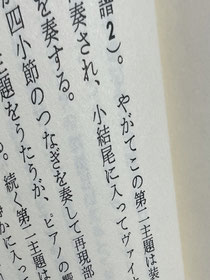 やがてこの第二主題は装
譜2)。
奏され、小結尾に入ってヴァイ
を奏する。
四小節のつなぎを奏して再現部
主題をうたうが、ピアノの
る。続く第二主題
かに入っ